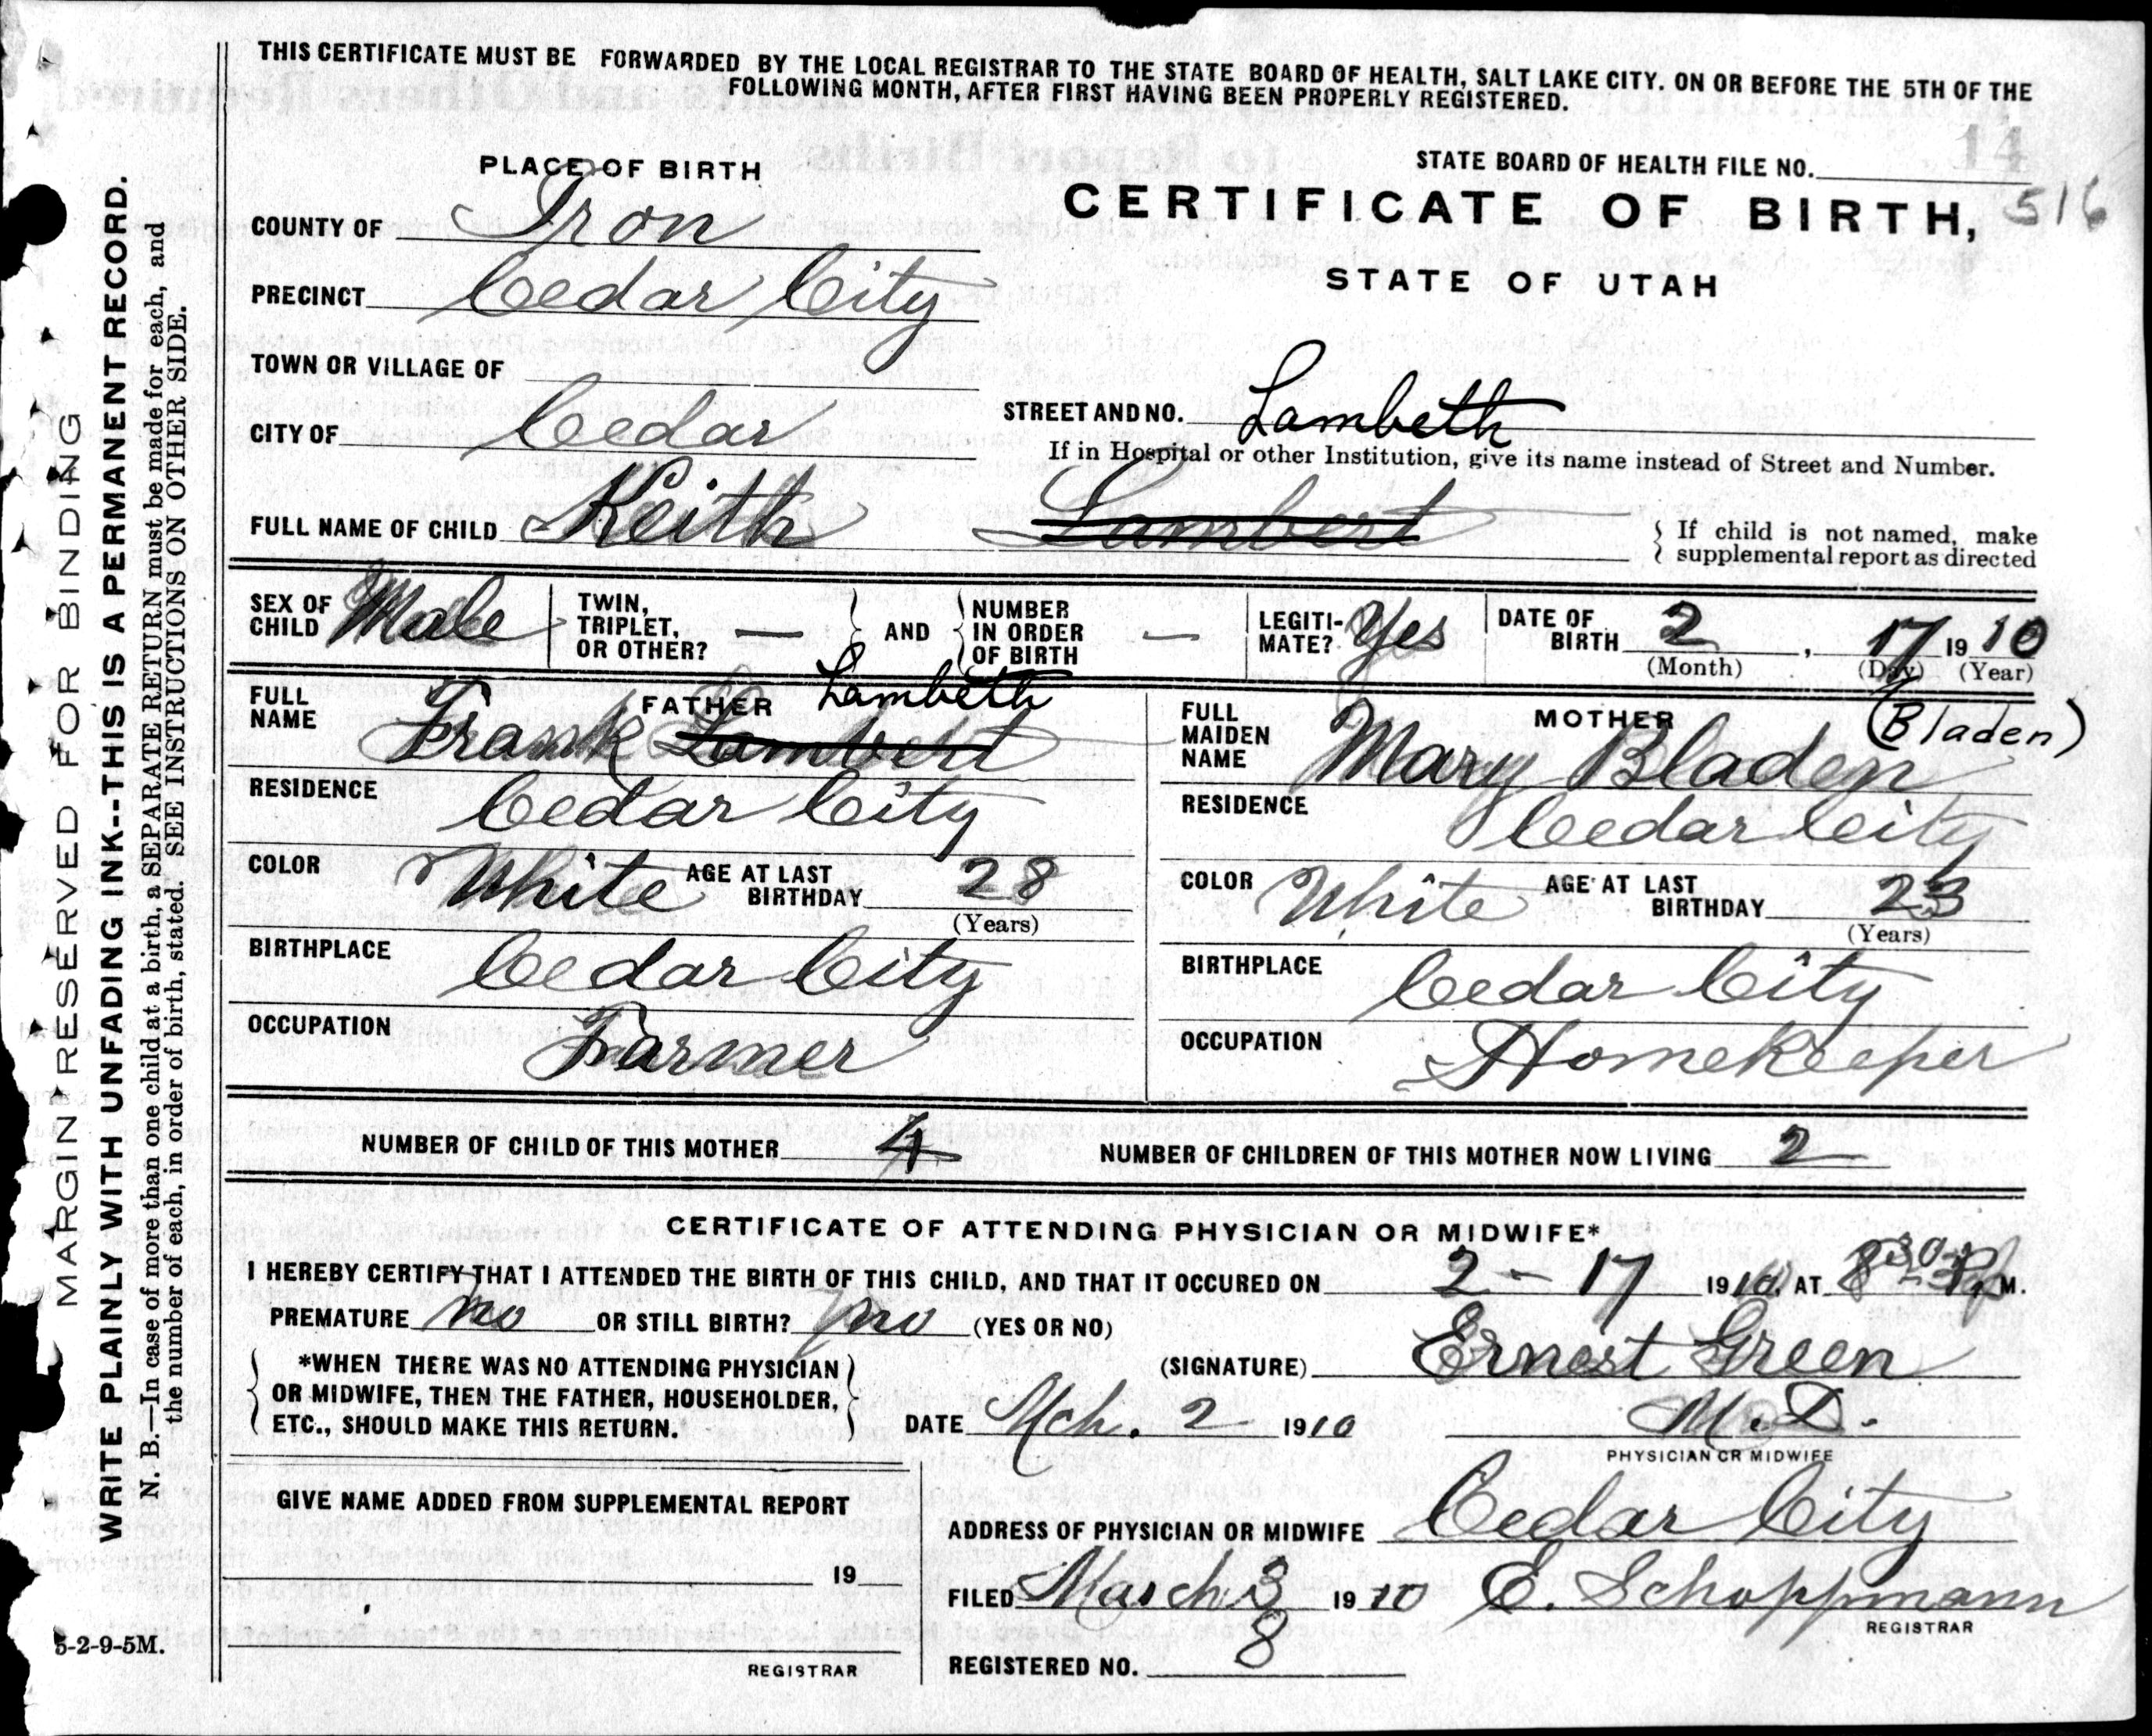 THIS CERTIFICATE MUST BE FORWARDED BY THE LOCAL REGISTRAR TO THE STATE BOARD OF HEALTH, SALT LAKE CITY. ON OR BEFORE THE 5TH OF THE
FOLLOWING MONTH, AFTER FIRST HAVING BEEN PROPERLY REGISTERED.
14
PLACE OF BIRTH
STATE BOARD OF HEALTH FILE NO.
COUNTY OF Iron
CERTIFICATE OF BIRTH, 516
PRECINCT Cedar City
STATE OF UTAH
TOWN OR VILLAGE OF
CITY OF Cedar
STREET AND NO. Lambeth
If in Hospital or other Institution, give its name instead of Street and Number.
FULL NAME OF CHILD Keith Lambert
{ If child is not named, make
supplemental report as directed
SEX OF CHILD Male
TWIN, TRIPLET, OR OTHER? —
AND
NUMBER IN ORDER OF BIRTH —
LEGITI- MATE? Yes
DATE OF BIRTH 2, 17 1910
(Month) (Day) (Year)
FATHER Lambeth
FULL NAME Frank Lambert
RESIDENCE Cedar City
COLOR White AGE AT LAST BIRTHDAY 28
(Years)
BIRTHPLACE Cedar City
OCCUPATION Farmer
MOTHER (Bladen)
FULL MAIDEN NAME Mary Bladen
RESIDENCE Cedar City
COLOR White AGE AT LAST BIRTHDAY 23
(Years)
BIRTHPLACE Cedar City
OCCUPATION Homekeeper
NUMBER OF CHILD OF THIS MOTHER 4 NUMBER OF CHILDREN OF THIS MOTHER NOW LIVING 2
CERTIFICATE OF ATTENDING PHYSICIAN OR MIDWIFE*
I HEREBY CERTIFY THAT I ATTENDED THE BIRTH OF THIS CHILD, AND THAT IT OCCURED ON 2 - 17 1910, AT 8 30 P. M.
PREMATURE no OR STILL BIRTH? no (YES OR NO)
*WHEN THERE WAS NO ATTENDING PHYSICIAN
OR MIDWIFE, THEN THE FATHER, HOUSEHOLDER,
ETC., SHOULD MAKE THIS RETURN.
(SIGNATURE) Ernest Green
DATE Mch. 2 1910 M.D.
PHYSICIAN OR MIDWIFE
GIVE NAME ADDED FROM SUPPLEMENTAL REPORT
19
REGISTRAR
ADDRESS OF PHYSICIAN OR MIDWIFE Cedar City
FILED March 3 1910 E. Schoppmann
REGISTRAR
REGISTERED NO. 8
5-2-9-5M.
MARGIN RESERVED FOR BINDING
WRITE PLAINLY WITH UNFADING INK--THIS IS A PERMANENT RECORD.
N. B.—In case of more than one child at a birth, a SEPARATE RETURN must be made for each, and
the number of each, in order of birth, stated. SEE INSTRUCTIONS ON OTHER SIDE.